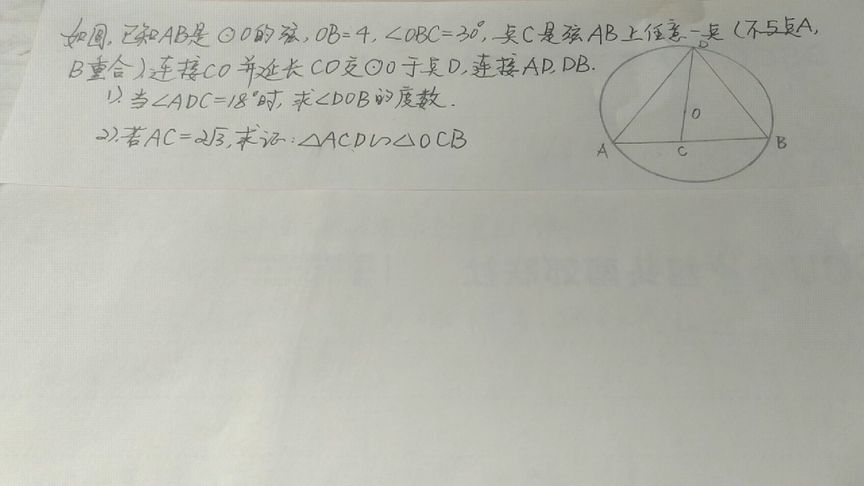 如图,已知AB是⊙O的弦,OB=4,∠OBC=30°,点C是弦AB上任意一点(不与点A,
B重合)连接CO并延长CO交⊙O于点D,连接AD,DB.
1).当∠ADC=18°时,求∠DOB的度数.
2).若AC=2√3,求证:△ACD∽△OCB
D
O
A
C
B